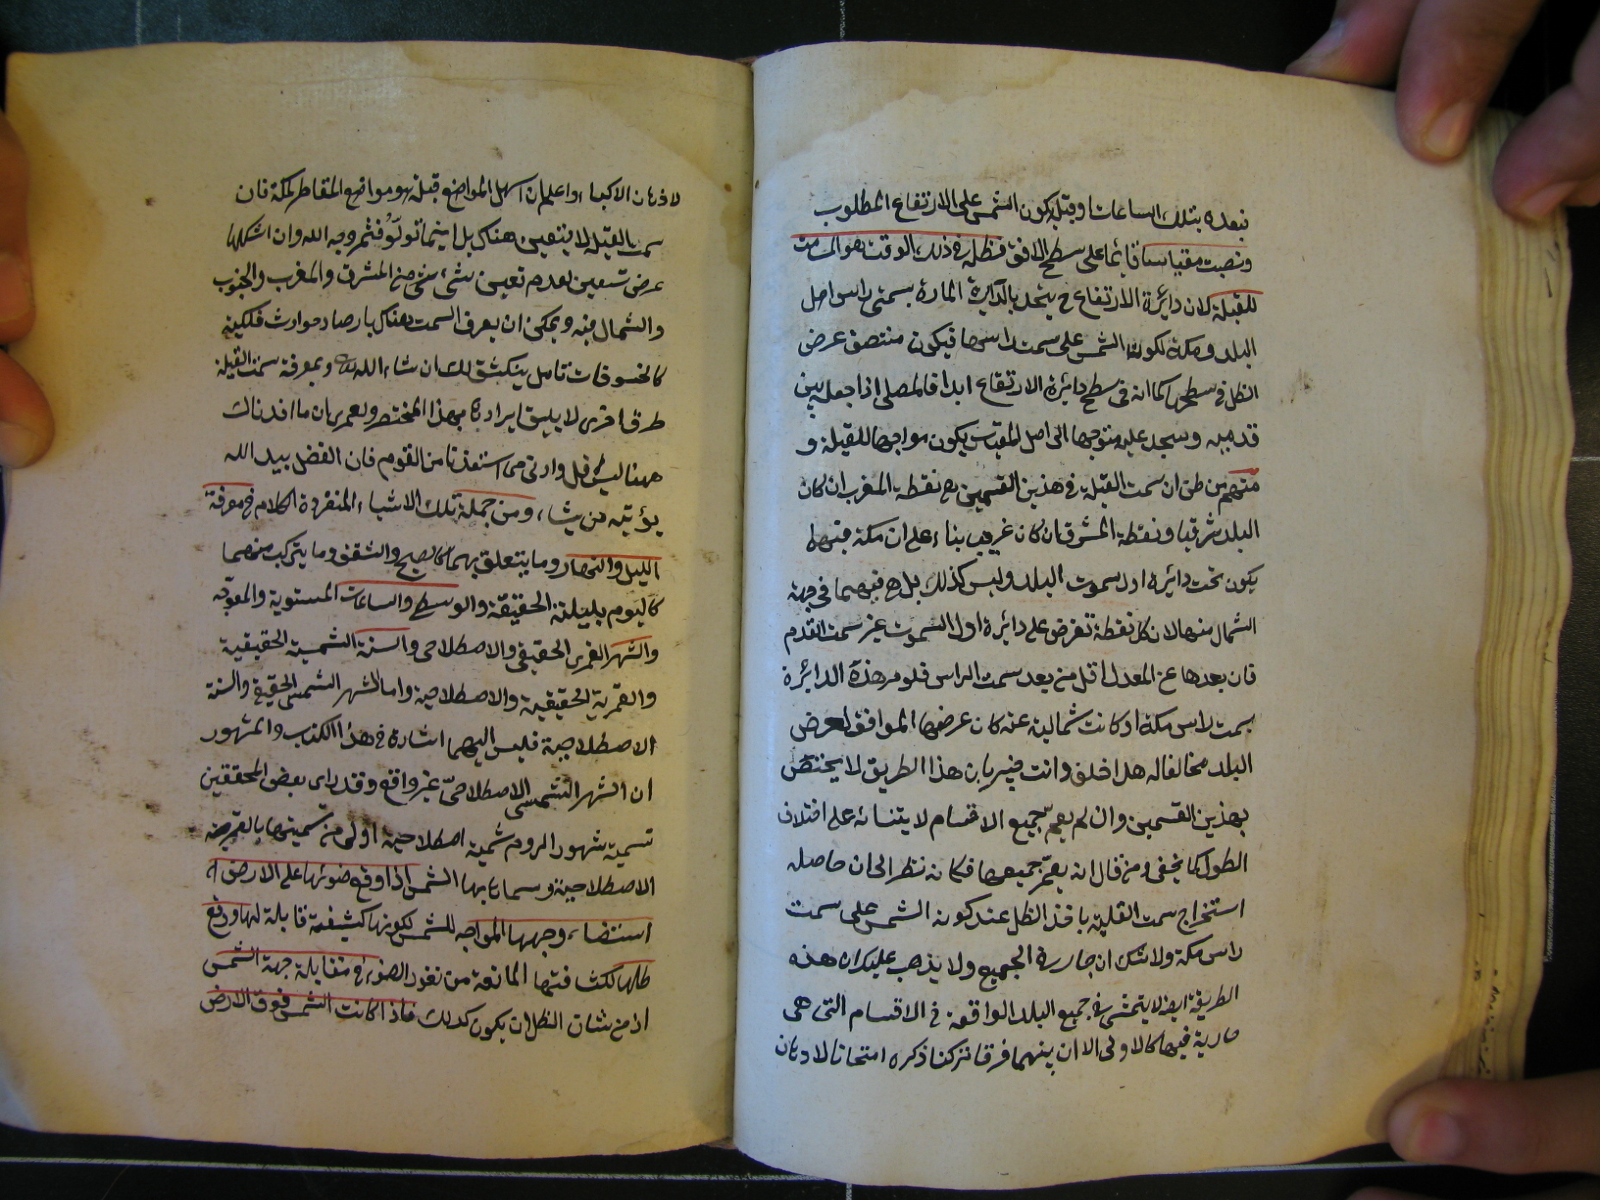 نبعده بتلك الساعات او قبله يكون الشمس على الارتفاع المطلوب
ونصبت مقياسا قائما على سطح الافق فظله فى ذلك الوقت هو المسامت
للقبلة لان دائرة الارتفاع ح يتحد بالدايرة المارة بسمتى راس اهل
البلد ومكة لكون الشمس على سمت راسها فيكون منتصف عرض
الظل فى سطحها كما انه فى سطح دائرة الارتفاع ابدا فالمصلى اذا جعله بين
قدميه وسجد عليه متوجها الى اصل المقياس يكون مواجها للقبلة و
منهم من ظن ان سمت القبلة فى هذين القسمين هو نقطة المغرب ان كان
البلد شرقيا ونقطة المشرق ان كان غربيا بناء على ان مكة فيهما
يكون تحت دائرة اول سموت البلد وليس كذلك بل هى فيهما فى جهة
الشمال منها لان كل نقطة تفرض على دائرة اول السموت غير سمت القدم
فان بعدها عن المعدل اقل من بعد سمت الراس فلو مر هذه الدائرة
بسمت راس مكة او كانت شمالية عنه كان عرضها الموافق لعرض
البلد مخالفا له هذا خلف وانت خبير بان هذا الطريق لا يختص
بهذين القسمين وان لم يعم جميع الاقسام لابتنائه على اختلاف
الطول كما يخفى ومن قال انه يعم جميعها فكانه نظر الى ان حاصله
استخراج سمت القبلة باخذ الظل عند كون الشمس على سمت
راس مكة ولا شك انه جار فى الجميع ولا يذهب عليك ان هذه
الطريقة ايضا لا يتمشى فى جميع البلد الواقعة فى الاقسام التى هى
جارية فيها كالاولى الا ان بينهما فرقا تركنا ذكره امتحانا لاذهان
لاذهان الاذكياء واعلم ان اسهل المواضع قبلة هو مواضع المقاطر لمكة فان
سمت القبلة لا يتعين هناك بل اينما تولوا فثم وجه الله وان اشكلها
عرض تسعين لعدم تعين شئ من المشرق والمغرب والجنوب
والشمال فيه ويمكن ان يعرف السمت هناك بارصاد حوادث فلكية
كالخسوفات تامل ينكشف لك ان شاء الله ولمعرفة سمت القبلة
طرق اخرى لا يليق ايرادها بهذا المختصر ولعمرى ان ما افدناك
ههنا ليس باقل وادنى مما استفدنا من القوم فان الفضل بيد الله
يؤتيه من يشاء ومن جملة تلك الاشياء المنفردة الكلام فى معرفة
الليل والنهار وما يتعلق بهما كالصبح والشفق وما يتركب منهما
كاليوم بليلته الحقيقة والوسطى والساعات المستوية والمعوجة
والشهر القمرى الحقيقى والاصطلاحى والسنة الشمسية الحقيقية
والقمرية الحقيقية والاصطلاحية واما الشهر الشمسى الحقيقى والسنة
الاصطلاحية فليس اليهما اشارة فى هذا الكتاب والمشهور
ان الشهر الشمسى الاصطلاحى غير واقع وقد راى بعض المحققين
تسمية شهور الروم شمسية اصطلاحية اولى من تسميتها بالقمرية
الاصطلاحية وسماها بها الشمس اذا وقع ضوئها على الارض
استضاء وجهها المواجه للشمس لكونها كثيفة قابلة لها ووقع
ظلها لكثافتها المانعة من نفوذ الضوء فى مقابلة جهة الشمس
اذ من شان الظل ان يكون كذلك فاذا كانت الشمس فوق الارض